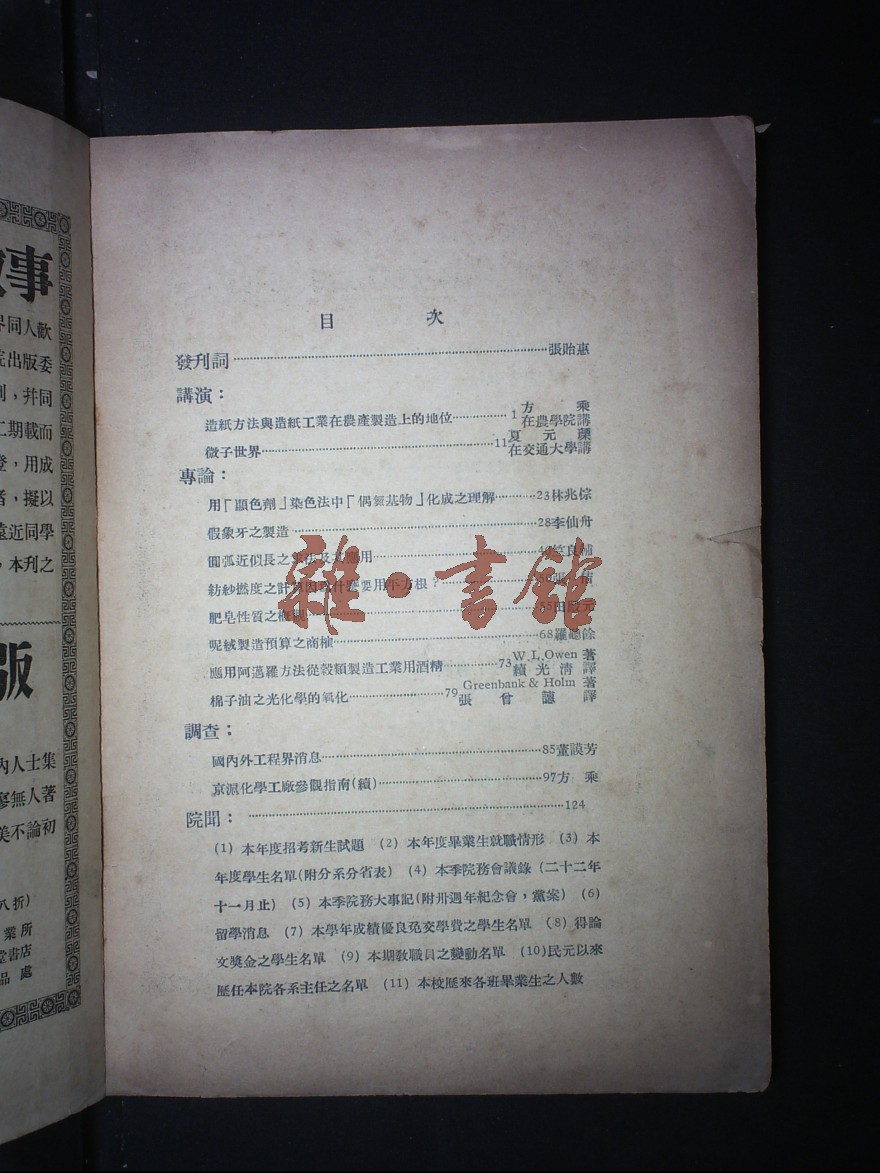 事
同人歡
院出版委
刊，幷同
二期載而
登，用成
者，擬以
遠近同學
，本刊之
版
內人士集
寥無人著
美不論初
八折）
業所
堂書店
品處
目　次
發刊詞……張貽惠
講演：
造紙方法與造紙工業在農產製造上的地位……1方乘在農學院講
微子世界……11夏元瑮在交通大學講
專論：
用「顯色劑」染色法中「偶氮基物」化成之理解……23林兆倧
假象牙之製造……28李仙舟
圓弧近似長之算法及其應用……良輔
紡紗撚度之計算因爲什麽要用平方根？……50張
肥皂性質之概觀……55田元
呢絨製造預算之商榷……68羅聽餘
應用阿邁羅方法從穀類製造工業用酒精……73W.L.Owen著續光淸譯
棉子油之光化學的氧化……79Greenbank & Holm著張曾譓譯
調查：
國內外工程界消息……85董謨芳
京滬化學工廠參觀指南(續)……97方乘
院聞：……124
(1) 本年度招考新生試題 (2) 本年度畢業生就職情形 (3) 本
年度學生名單(附分系分省表) (4) 本季院務會議錄 (二十二年
十一月止) (5) 本季院務大事記(附卅週年紀念會，黨案) (6)
留學消息 (7) 本學年成績優良免交學費之學生名單 (8) 得論
文獎金之學生名單 (9) 本期敎職員之變動名單 (10)民元以來
歷任本院各系主任之名單 (11) 本校歷來各班畢業生之人數
雜·書館